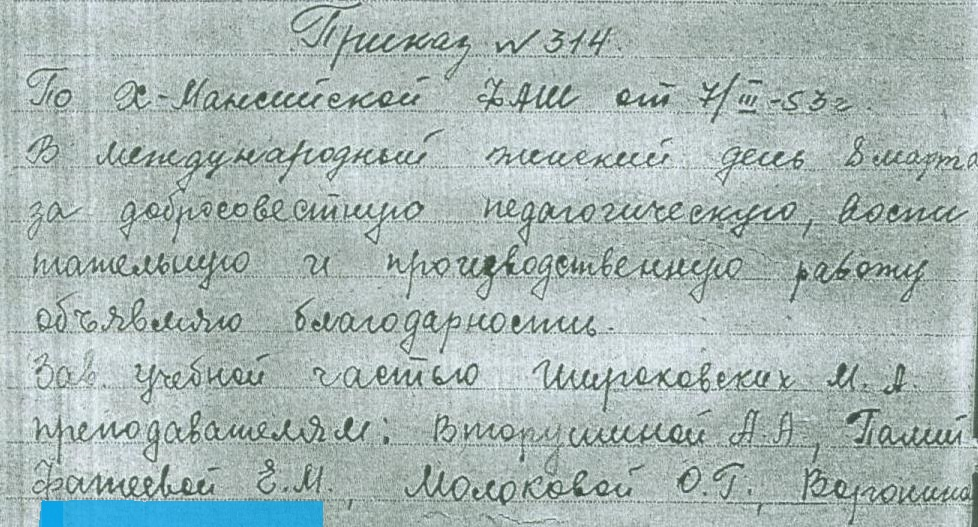 Приказ N 314.
По Х-Мансийской ФАШ от 7/III-53г.
В международный женский день 8 марта
за добросовестную педагогическую, воспи
тательную и производственную работу
объявляю благодарность.
Зав. учебной частью Широковских М. А.
преподавателям: Вторушиной А.А, Палий
Фатеевой Е.М, Молоковой О.Г. Воронино